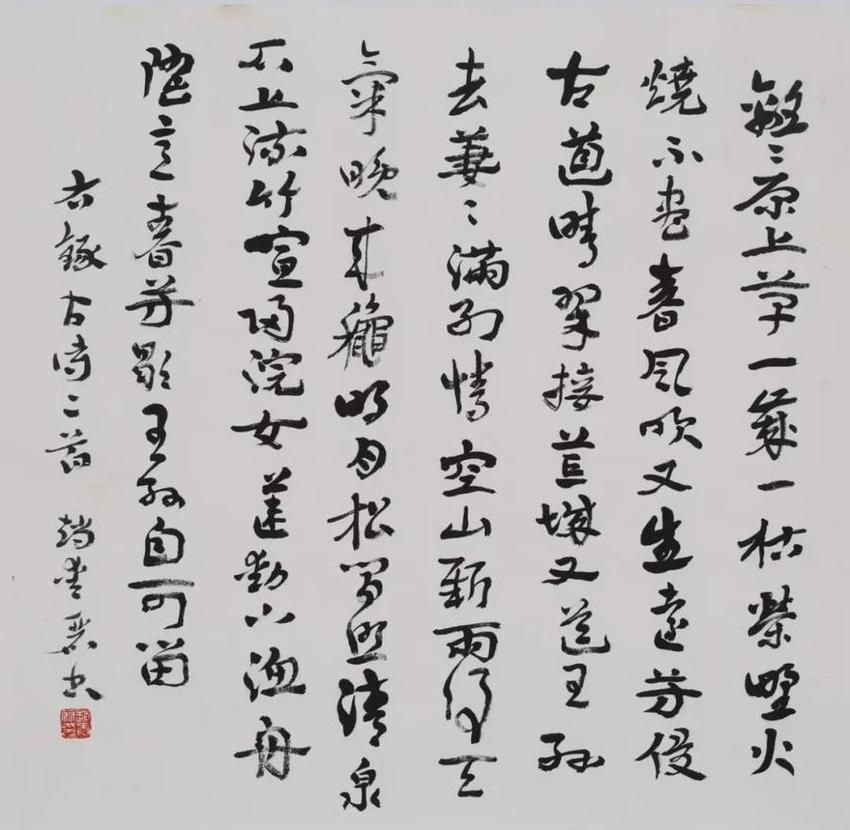 離〻原上草一歲一枯榮野火
燒不盡春風吹又生遠芳侵
古道晴翠接荒城又送王孫
去萋〻滿別情空山新雨後天
氣晚來龝明月松間照清泉
石上流竹宣歸浣女蓮動下漁舟
隨意春芳歇王孫自可留
右錄古詩二首 趙書